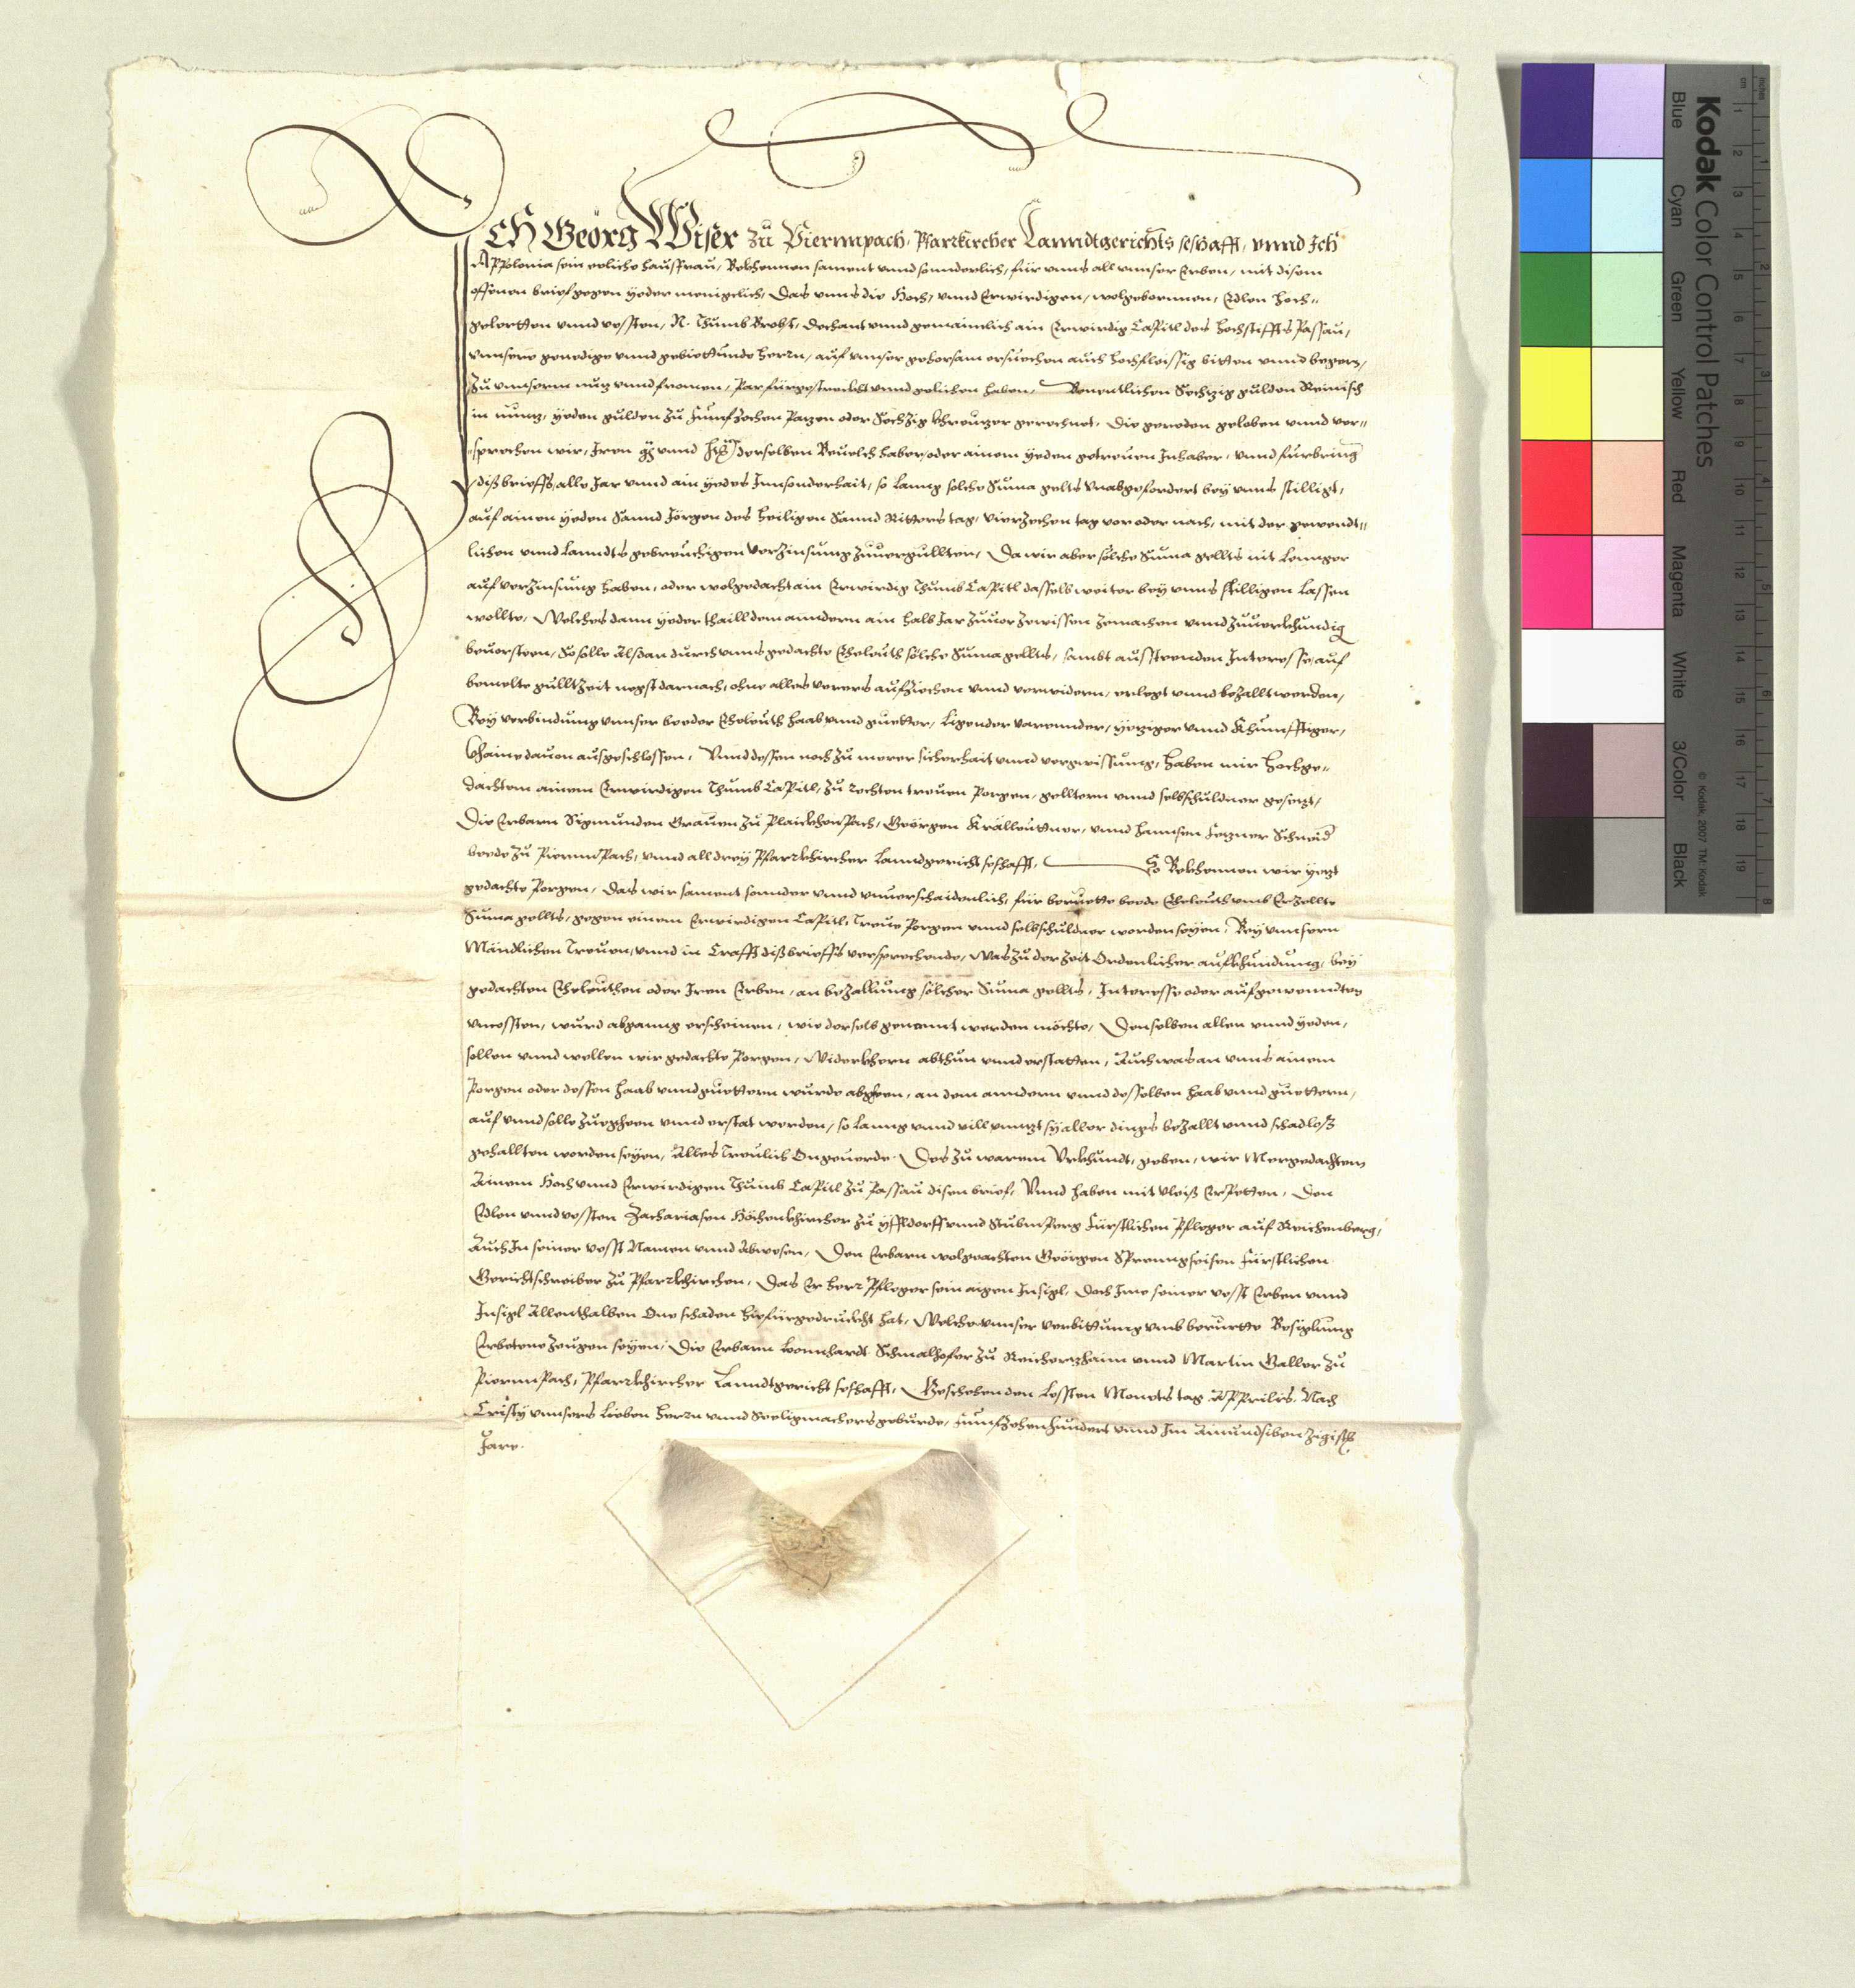 Ich Geörg Wiser zu Piermpach, Pfarrkircher Lanndtgerichts seshafft, vnnd Ich
Appolonia sein eeliche hausfrau, Bekhennen sament vnnd sonnderlich, für vnns all vnnser Erben, mit disem
offenen brief gegen yeder menigclich, Das vnns die Hoch, vnnd Erwirdigen, wolgebornnen, Edlen Hoch-
gelertten vnnd vessten, N. Thumb Brobst, Dechant vnnd gemainlich ain Erwirdig Capitl des Hochstiffts Passau,
vnnsere genedige vnnd gebiettunde Herrn, auf vnnser gehorsam ersuechen auch hochfleissig bitten vnnd begern,
Zu vnnserm nuz vnnd fromen, Par fürgestreckht vnnd gelichen haben, Benentlichen Sechtzig gulden Reinisch
in munz, yeden gulden zu Funfzechen Pazen oder Sechzig khreuzer gerechnet. Die gereden geloben vnnd ver-
sprechen wir, Iren vnnd derselben Beuelch haber, oder ainem yeden getreuen Inhaber, vnnd furbring
diß brieffs, alle Jar vnnd ain yedes Innsonderhait, so lanng solche Suma gelts vnabgefordert bey vnns stilligt,
auf ainen yeden Sannd Jörgen des heiligen Sannd Ritters tag, vierzechen tag vor oder nach, mit der gewendt-
lichen vnnd lanndts gebreuchigen verzinsung zuuergullten, Da wir aber solche Suma gellts nit lennger
auf verzinsung haben, oder wolgedacht ain Erwirdig Thumb Capitl dasselb weiter bey vnns stilligen lassen
wollte, Welches dann yeder thaill dem anndern ain halb Jar zuuor zewissen zemachen vnnd zuuerkhundig
beuorsteen, So solle Alsdan durch vnns gedachte Eheleuth solche Suma gellts, sambt aussteenden Interesse, auf
bemelte gulltzeit negst darnach, ohne alles verers aufziechen vnnd verwidern, erlegt vnnd bezallt werden,
Bey verbindung vnnser beeder Eheleuth haab vnnd guetter, ligender varennder, yeziger vnnd Khunfftiger,
Khaine dauon ausgeschlossen, Vnnd dessen noch zu merer sicherhait vnnd vergwissung, haben mir Hochge-
dachtem ainem Erwirdigen Thumb Capitl, zu rechten treuen Porgen, gelltern vnnd selbschuldner gesezt,
Die Erbarn Sigmunden Grauen zu Plaickhenpach, Geörgen Krälleuttner, vnnd Hannsen Lezner Schneid
beede zu Piermpach, vnnd all drey Pfarrkhircher Lanndgericht seshafft, So Bekhennen wir yezt
gedachte Porgen, Das wir sament sonnder vnnd vnuerschaidenlich, für beruerte beede Eheleuth vmb Erzellte
Suma gellts, gegen einem Erwirdigen Capitl, Treue Porgen vnnd selbschuldner worden seyen, Bey vnnsern
Mändlichen Treuen, vnnd in Crafft diß brieffs versprechende, Was zu der zeit Ordenlicher aufkhundung, bey
gedachten Eheleuthen oder Iren Erben, an bezallung solcher Suma gellts, Interesse oder aufgewenndten
vncossten, wurd abganng erscheinen, wie der selb genennt werden möchte, Denselben allen vnnd yeden,
sollen vnnd wellen wir gedachte Porgen, Widerkhern abthun vnnd erstatten, Auch was an vnns ainem
Porgen oder dessen haab vnnd guettern wurde abgeen, an dem anndern vnnd desselben haab vnnd guettern,
auf vnnd solle zuegheen vnnd erstat werden, so lanng vnnd vill vnnzt sy aller dings bezallt vnnd schadloß
gehallten worden seyen, Alles Treulich Ongeuerde. Des zu warem Vrkhundt, geben, wir Mergedachtem
Ainem Hoch vnnd Erwirdigen Thumb Capitl zu Passau disen brief, Vnnd haben mit vleiß Erpetten, Den
Edlen vnnd vessten Zachariasen Höchenkhircher zu Yffldorff vnnd Fürstlichen Pfleger auf Reichenberg,
Auch In seiner vesst Namen vnnd Abwesen, Den Erbarn wolgeachten Geörgen Sprenngseisen Fürstlichen
Gerichtschreiber zu Pfarrkhirchen, Das Er herr Pfleger sein aigen Insigl, Doch Ime seiner vesst Erben vnnd
Insigl Allenthalben One schaden hiefürgedruckht hat, Welcher vnnser verbittung vmb beruerte Besiglung
Erbetene zeugen seyen, Die Erbarn Leonnhardt Schmalhofer zu Reicherzhaim vnnd Martin Galler zu
Piermpach, Pfarrkhircher Lanndtgericht seshafft, Geschehen den lessten Monets tag Apprilis, Nach
Cristy vnnsers lieben herrn vnnd Seeligmachers geburde, Funfzehenhundert vnnd Im Ainundsibenzigisth
Jare.
Kodak Color Control Patches
Blue Cyan Green Yellow Red Magenta White 3/Color Black
© Kodak, 2007 TM: Kodak
cm 1 2 3 4 5 6 7 8 9 10 11 12 13 14 15 16 17 18 19
inches 1 2 3 4 5 6 7 8